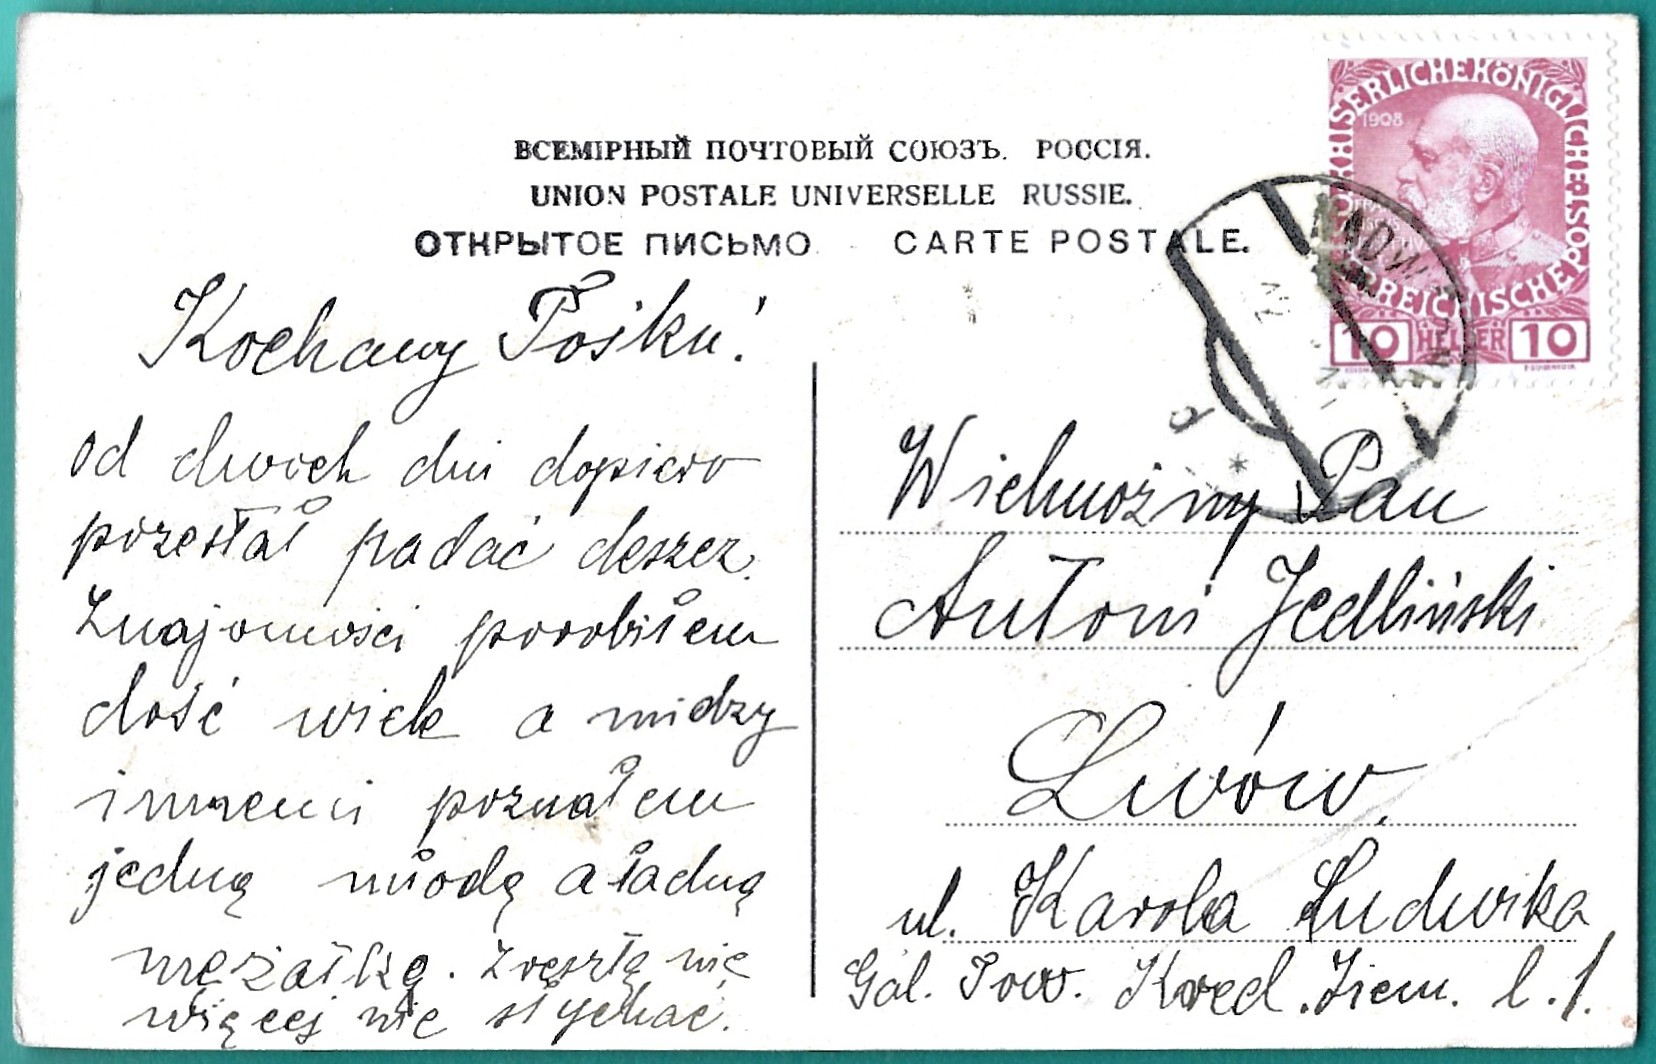 ВСЕМІРНЫЙ ПОЧТОВЫЙ СОЮЗЪ. РОССІЯ.
UNION POSTALE UNIVERSELLE RUSSIE.
ОТКРЫТОЕ ПИСЬМО - CARTE POSTALE.
KAISERLICHE KÖNIGLICHE ÖSTERREICHISCHE POST
1908
10 HELLER 10
Kochany Tośku!
od dwóch dni dopiero
przestał padać deszcz.
Znajomości porobiłem
dość wiele a midzy
innemi poznałem
jedną młodą a ładną
mężatkę. Zresztą nic
więcej nie słychać.
Wielmożny Pan
Antoni Jedliński
Lwów,
ul. Karola Ludwika
Gal. Tow. Kred. Ziem. l. 1.